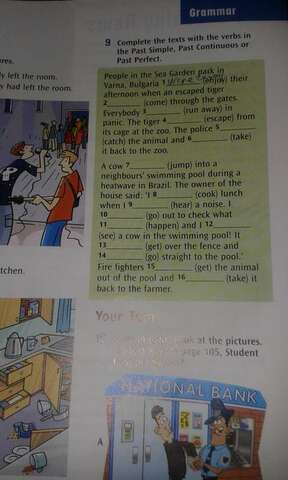 Grammar
9 Complete the texts with the verbs in
the Past Simple, Past Continuous or
Past Perfect.
People in the Sea Garden park in
Varna, Bulgaria 1 were (enjoy) their
afternoon when an escaped tiger
2________ (come) through the gates.
Everybody 3________ (run away) in
panic. The tiger 4________ (escape) from
its cage at the zoo. The police 5________
(catch) the animal and 6________ (take)
it back to the zoo.
A cow 7________ (jump) into a
neighbours' swimming pool during a
heatwave in Brazil. The owner of the
house said: 'I 8________ (cook) lunch
when I 9________ (hear) a noise. I
10________ (go) out to check what
11________ (happen) and I 12________
(see) a cow in the swimming pool! It
13________ (get) over the fence and
14________ (go) straight to the pool.'
Fire fighters 15________ (get) the animal
out of the pool and 16________ (take) it
back to the farmer.
ly left the room.
y had left the room.
tchen.
Your
at the pictures.
105, Student
NATIONAL BANK
A